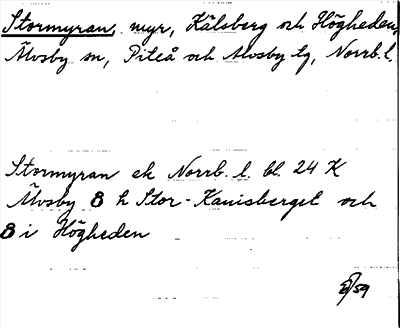 Stormyran, myr, Kälsberg och Högheden,
Älvsby sn, Piteå och Älvsby tg, Norrb. l.
Stormyran ek Norrb. l. bl. 24 K
Älvsby 8 h Stor-Kanisberget och
8 i Högheden
/59